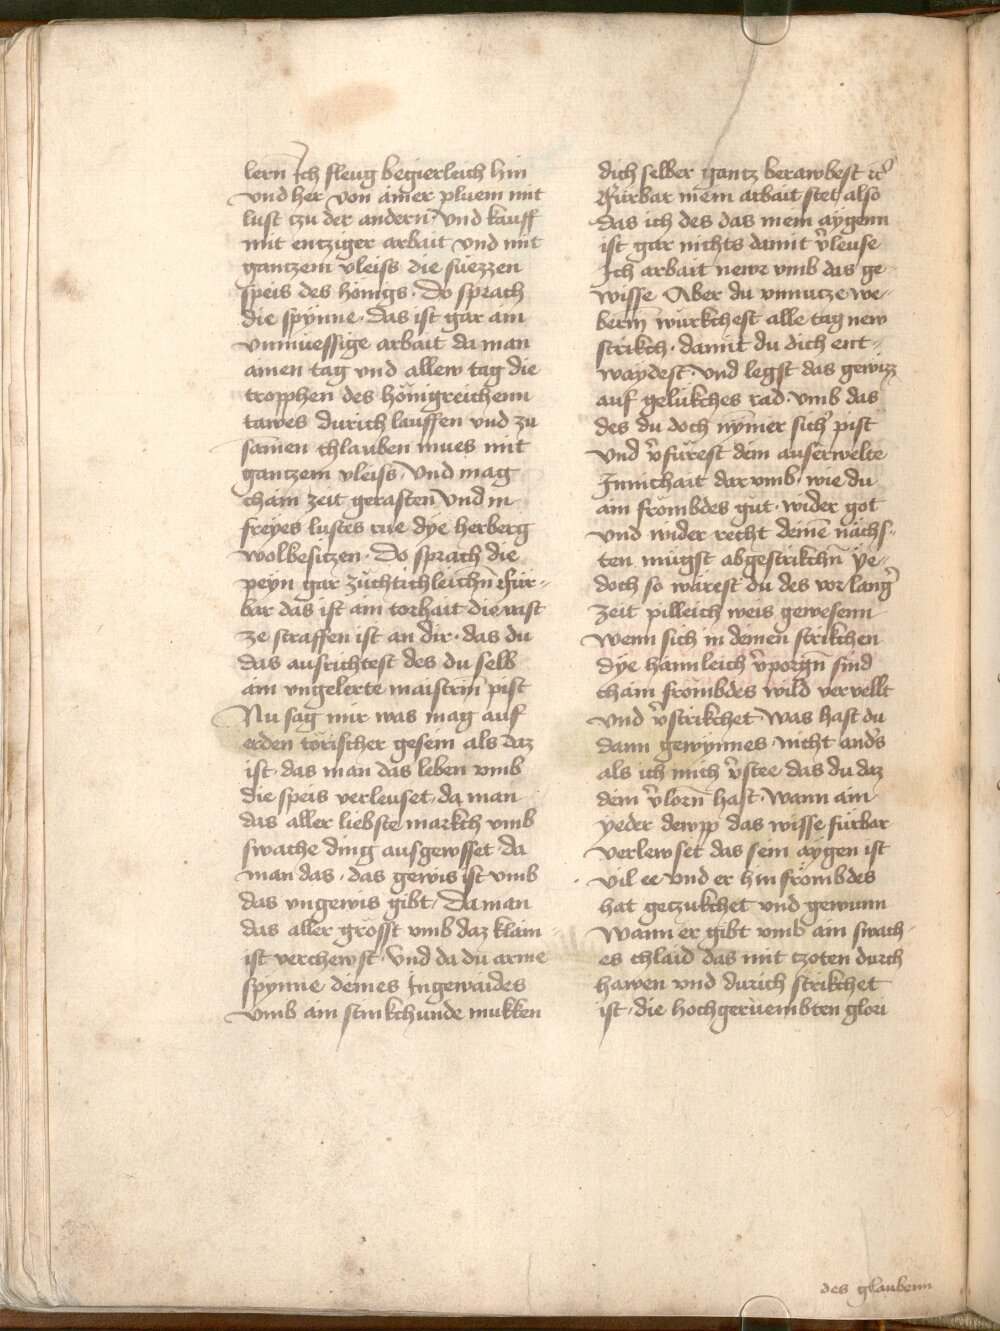 lern̄ Ich fleug begierleich hin
vnd her von ainer pluem mit
lust czu der andern vnd kauff
mit entziger arbait vnd mit
gantzem vleiss die suezzen
speis des hönigs · Do sprach
die spynne · das ist gar ain
vnmüessige arbait da man
ainen tag vnd allew tag die
tropphen des hönigreichenn
tawes durich lauffen vnd zu
samen chlauben mues mit
gantzem vleiss · vnd mag
chain zeit gerasten vnd in
freyes lustes rue dye herberg
wolbesitzen · Do sprach die
peyn gar züchtichleichn̄ Für-
bar das ist ain torhait die
ze straffen ist an dir · das du
das ausrichtest des du selb
ain vngelerte maistrin pist
Nu sag mir was mag auf
erden törischer gesein als daz
ist · das man das leben vmb
die speis verleuset · da man
das aller liebste markch vmb
swache ding ausgewsset · da
man das · das gewis ist vmb
das vngewis gibt · Da man
das aller grösst vmb daz klain
ist verchewft · vnd da du arme
spynne deines Ingewaides
vmb ain stinkchunde mukken
dich selber gantz berawbest
Fürbar mein arbait stet also
das ich des das mein aygenn
ist gar nichts damit v̄leuse
Ich arbait newr vmb das ge-
wisse Aber du vnnutze we-
berin würkchest alle tag new
strikch · damit du dich ent-
waydest vnd legst das gewizz
auf gelükches rad · vmb das
des du doch nymer sich̄ pist
vnd v̄fürest dein auserwelte
Innichait dar vmb · wie du
ain frömbdes gut · wider got
vnd wider recht deinē nächs-
ten mügst abgestrikchn̄ ye-
doch so wärest du des vor lanḡ
zeit pilleich weis gewesenn
wenn sich in deinen strikchen
dye hannleich v̄porgn̄ sind
chain frömbdes wild vervellt
vnd v̄strikchet · was hast du
dann gewynnes · nicht and̄s
als ich mich v̄stee das du daz
dein v̄lorn̄ hast · Wann ain
yeder dewpp das wisse fürbar
verlewset das sein aygen ist
vil ee vnd er hin frömbdes
hat geczukchet vnd gewunn
Wann er gibt vmb ain swach-
es chlaid das mit czoten durch
hawen vnd durich strikchet
ist · die hochgerüembten glori
des glaubenn